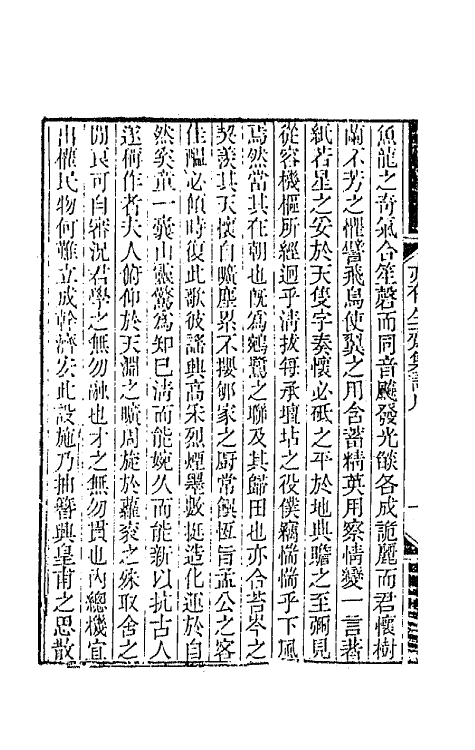 魚龍之奇氣合笙磬而同音飈發光燄各成詭麗而君懷樹
蘭不芳之懼譬飛鳥使翼之用含蓄精英用察情變一言著
紙若星之安於天隻字奏懷必砥之平於地典贍之至彌見
從容機樞所經迥乎淸拔每承壇坫之役僕竊惴惴乎下風
焉然當其在朝也旣爲鵷鷺之聯及其歸田也亦合苔岑之
契羨其天懷自曠塵累不攖郇家之厨常饌恆旨孟公之客
佳醞必傾時復此歌彼謠興高采烈煙墨數挺造化運於自
然奚童一囊山靈驚爲知己淸而能婉久而能新以抗古人
遂稱作者夫人俯仰於天淵之曠周旋於蘿袞之殊取舍之
閒良可自審況君學之無勿融也才之無勿貫也內總機宜
出懽民物何難立成幹濟宏此設施乃抽簪興皇甫之思散